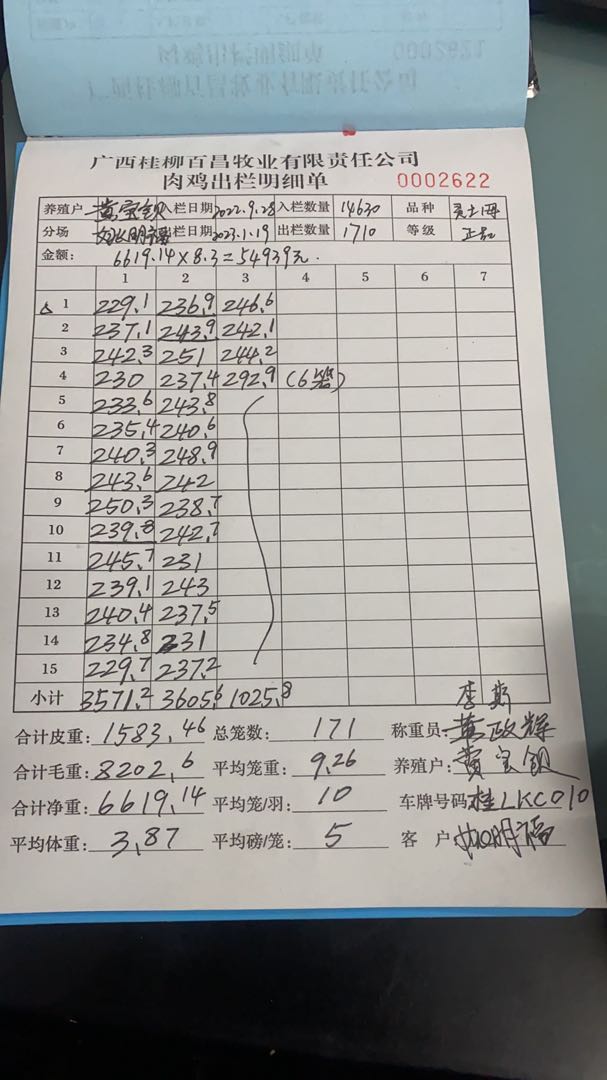 广西桂柳百昌牧业有限责任公司
肉鸡出栏明细单 0002622
养殖户 黄宝钡 入栏日期 2022.9.28 入栏数量 14630 品种
分场 出栏日期 2023.1.19 出栏数量 1710 等级
金额: 6619.14×8.3=54939元.
1 2 3 4 5 6 7
△ 1 229.1 236.9 246.6
2 237.1 243.9 242.1
3 242.3 251 244.2
4 230 237.4 292.9 (6笼)
5 233.6 243.8
6 235.4 240.6
7 240.3 248.9
8 243.6 242
9 250.3 238.7
10 239.8 242.7
11 245.7 231
12 239.1 243
13 240.4 237.5
14 234.8 231
15 229.7 237.2
小计 3571.2 3605.6 1025.8
合计皮重: 1583.46 总笼数: 171 称重员: 李斯 黄政辉
合计毛重: 8202.6 平均笼重: 9.26 养殖户: 黄宝钡
合计净重: 6619.14 平均笼/羽: 10 车牌号码 桂LKC010
平均体重: 3.87 平均磅/笼: 5 客户